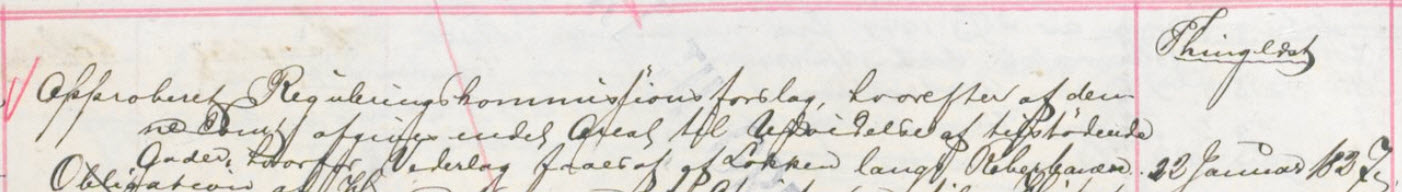 Thinglæst
Approberet Reguleringskommissions forslag, hvorefter af den-
ne Tomt afgives endel Areal til Udvidelse af tilstødende
Gader, hvorfor Vederlag faaes af Løkken langs Reberbanen. 22 Januar 1837.
Obligation